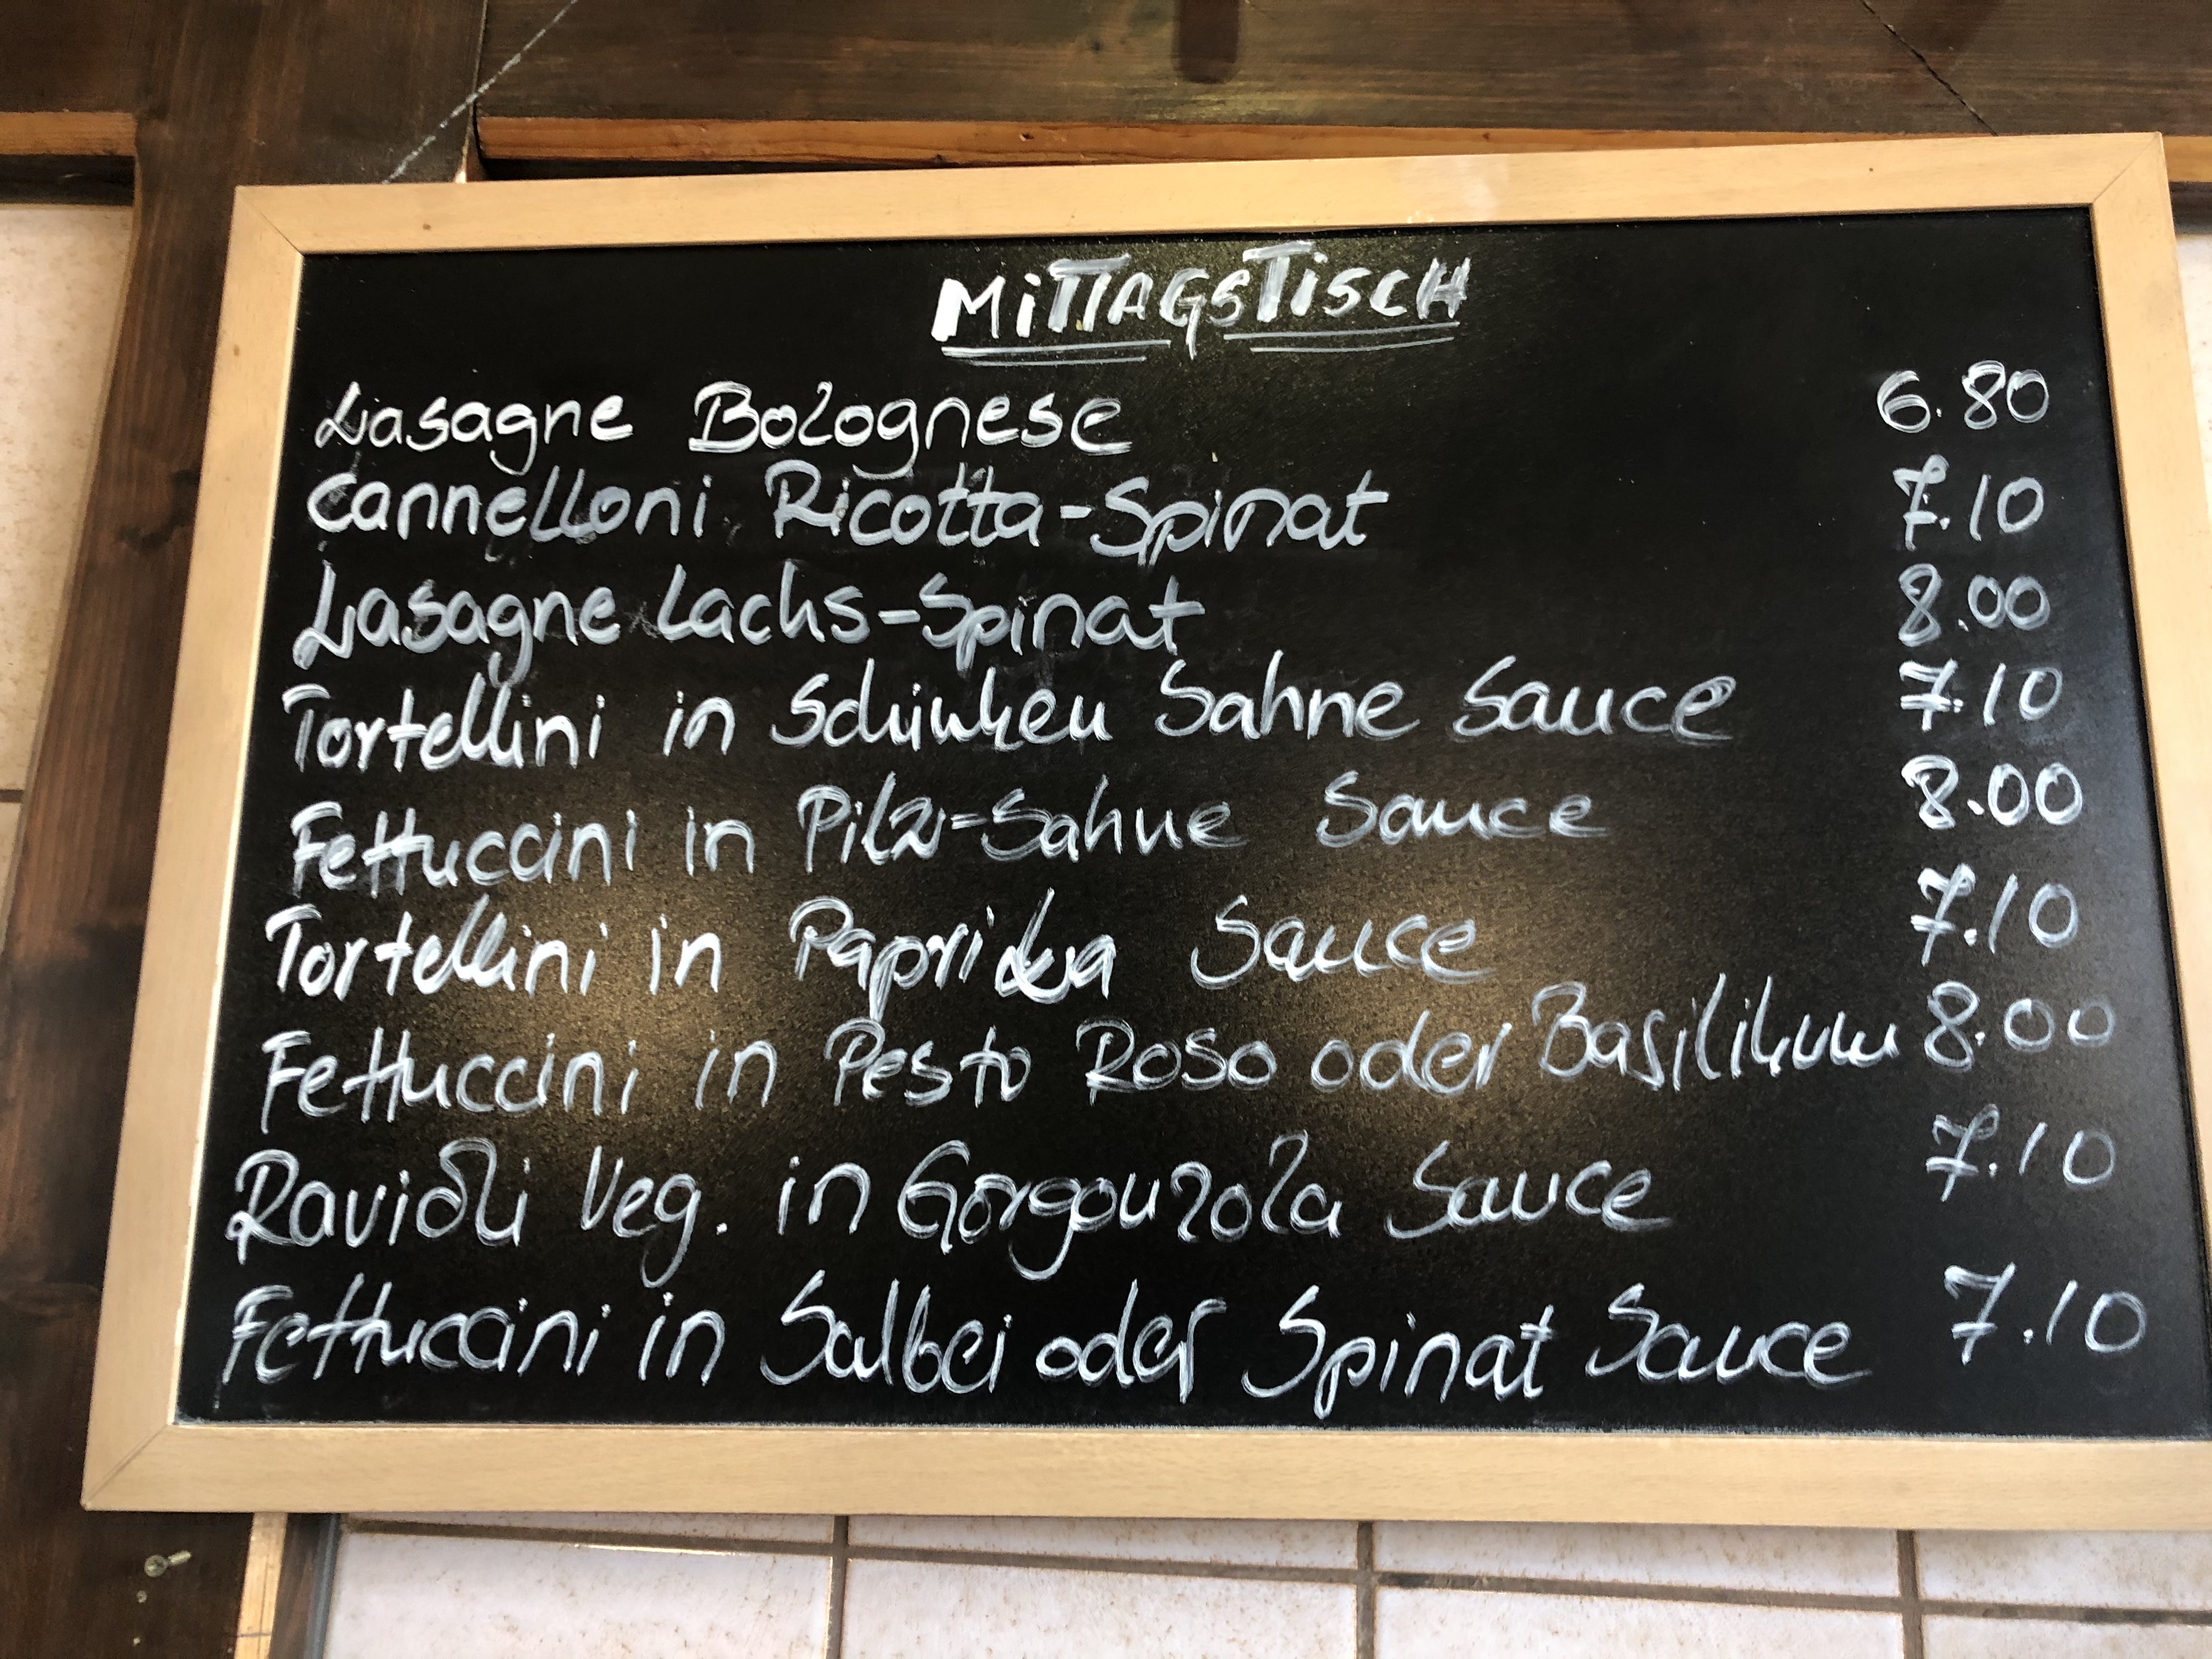 MiTTAGSTiSCH
Lasagne Bolognese 6.80
Cannelloni Ricotta-Spinat 7.10
Lasagne Lachs-Spinat 8.00
Tortellini in Schinken Sahne Sauce 7.10
Fettuccini in Pilz-Sahne Sauce 8.00
Tortellini in Paprika Sauce 7.10
Fettuccini in Pesto Roso oder Basilikum 8.00
Ravioli Veg. in Gorgonzola Sauce 7.10
Fettuccini in Salbei oder Spinat Sauce 7.10